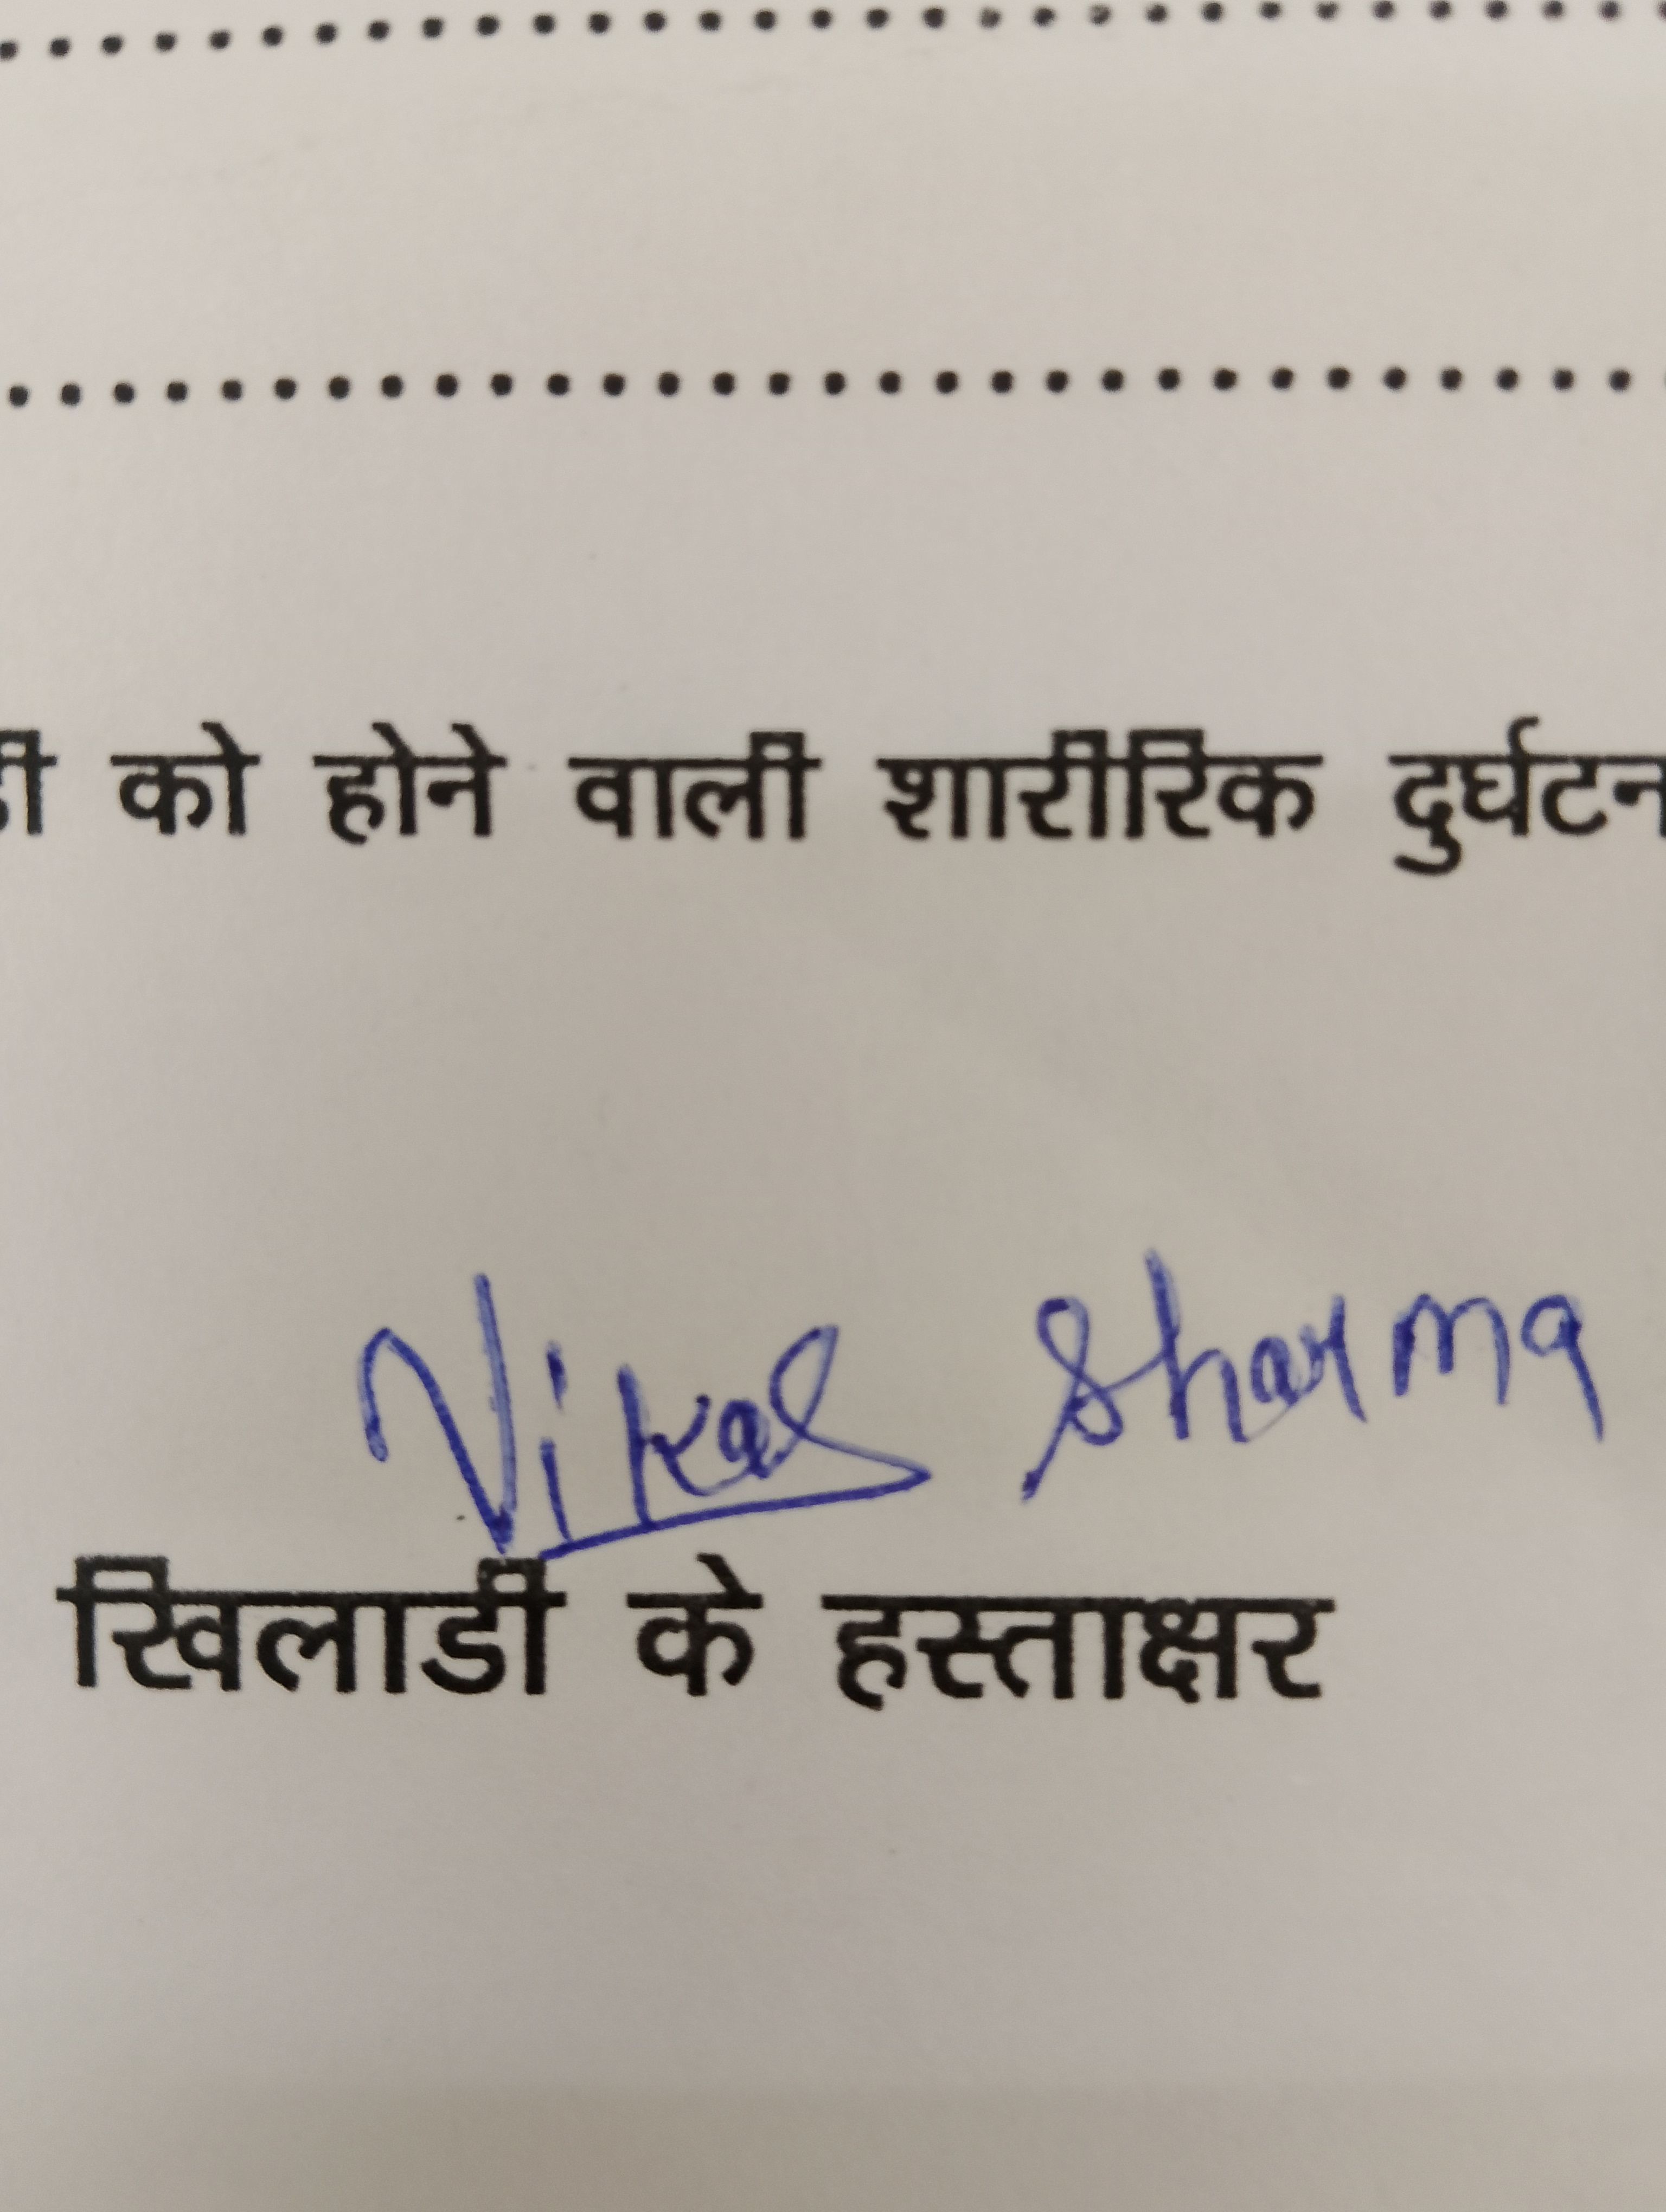 को होने वाली शारीरिक
Vikas Sharma
खिलाडी के हस्ताक्षर